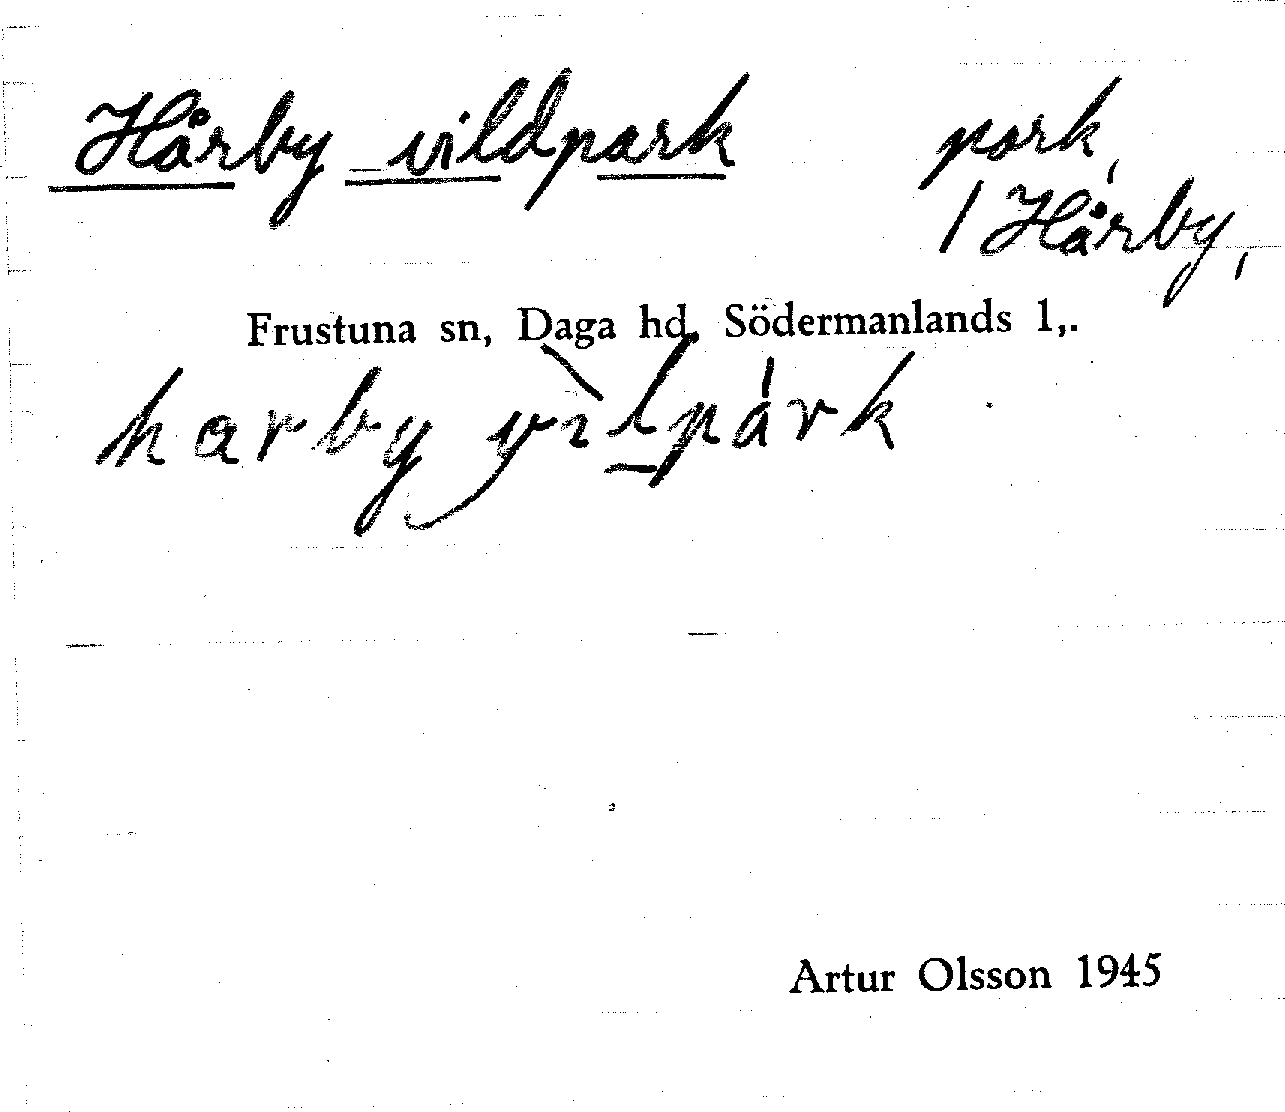 Hårby vildpark park,
/ Hårby,
Frustuna sn, Daga hd, Södermanlands l,.
harby vìlpárk
Artur Olsson 1945